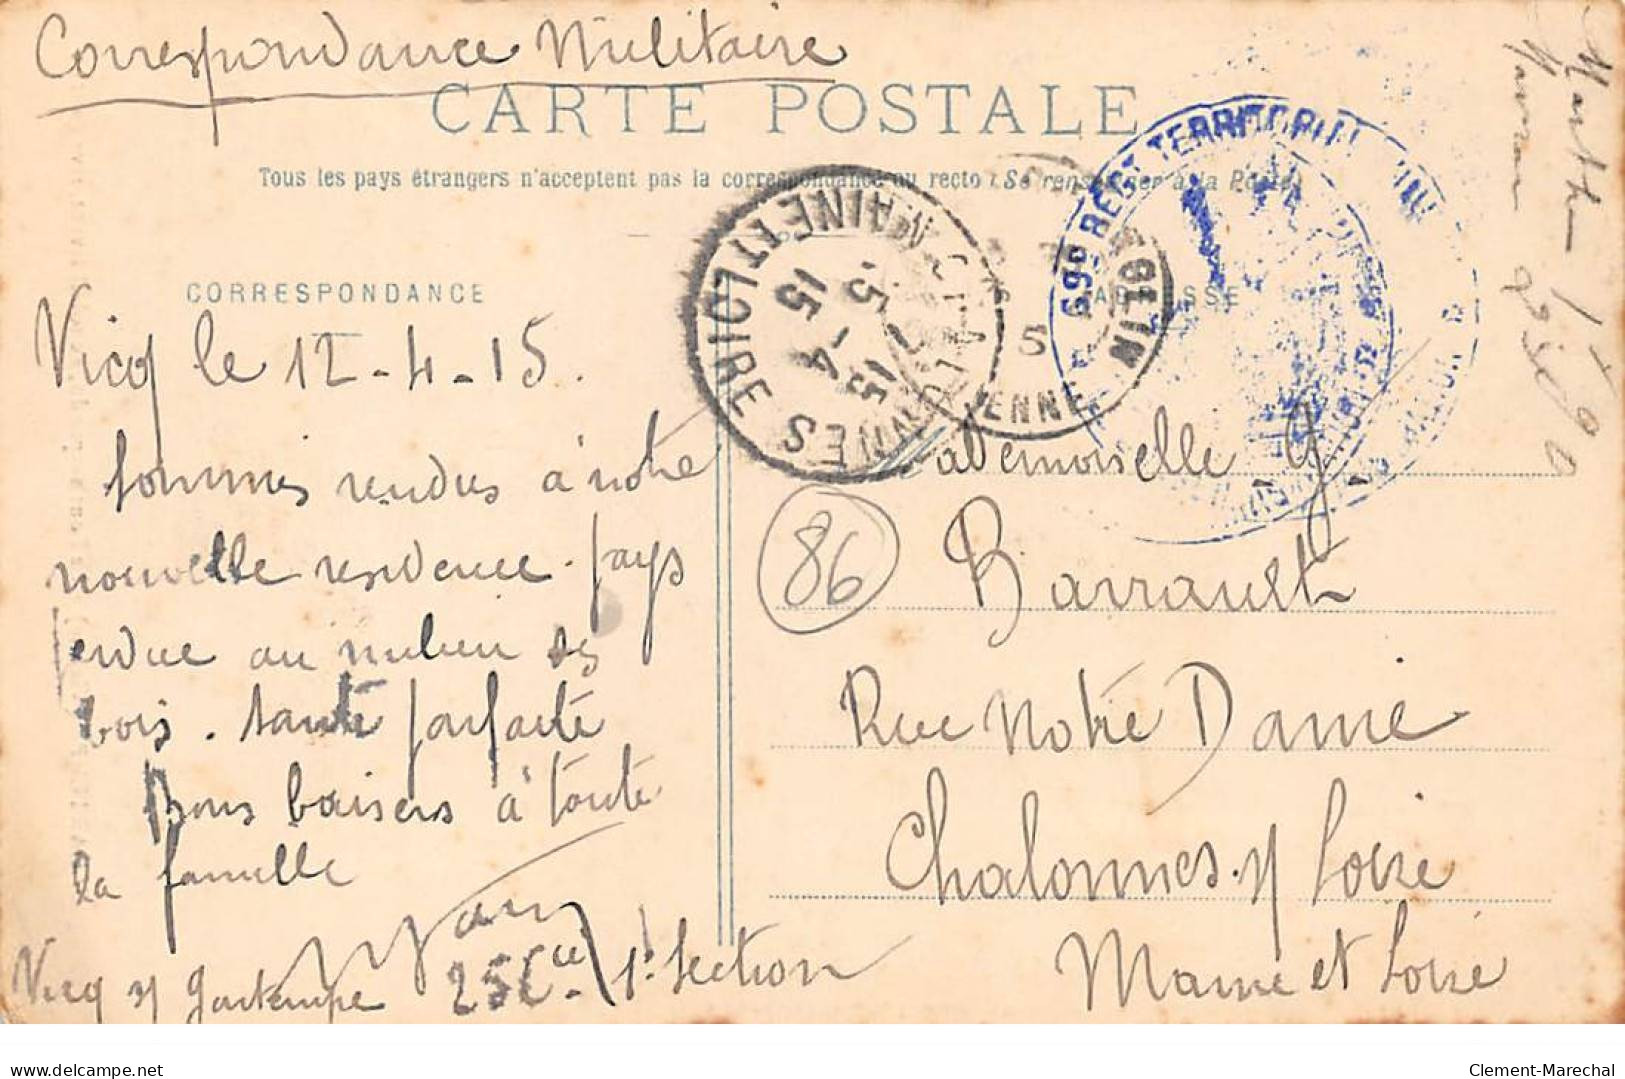 Correspondance Militaire
CARTE POSTALE
Tous les pays étrangers n'acceptent pas la correspondance au recto (Se renseigner à la Poste)
CORRESPONDANCE
Vicq le 12-4-15.
sommes rendus à notre
nouvelle residence. pays
perdue au milieu des
bois. Santé parfaite
Bons baisers à toute
la famille
Vicq s/ gartempe 25e Cie 1e Section
CHALONNES
MAINE ET LOIRE
15 -4
15
69e REGt TERRITORIAL
86
Mademoiselle G.
Barrault
Rue Notre Dame
Chalonnes s/ Loire
Maine et Loire
www.delcampe.net
Clement-Marechal